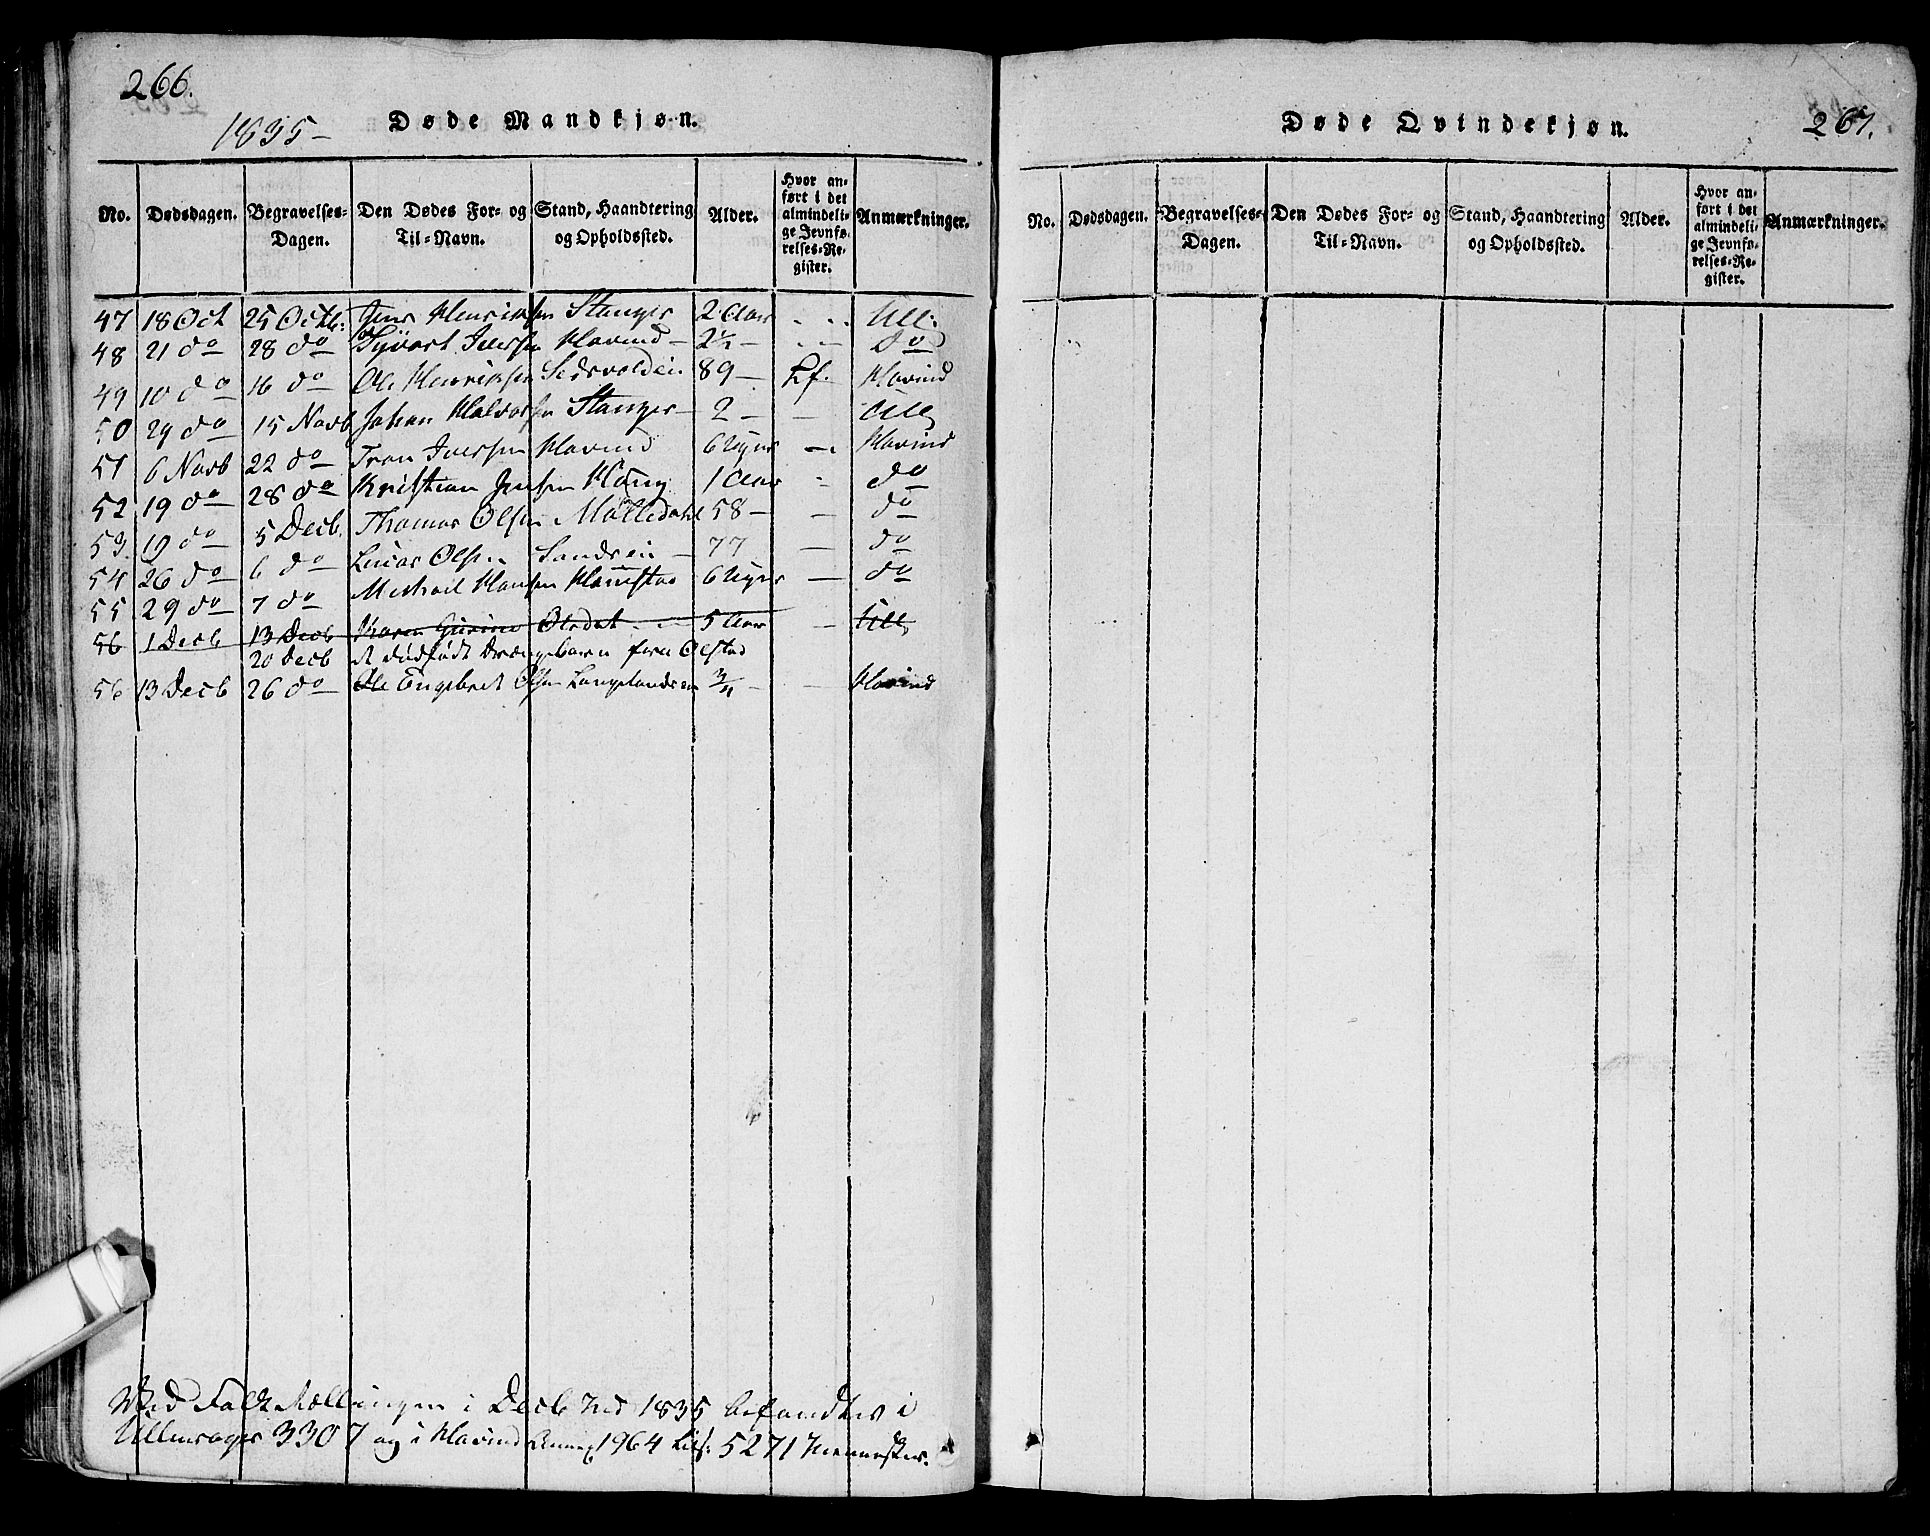 266.
1835 – Døde Mandkjøn.
No. Dødsdagen. Begravelses-Dagen. Den Dødes For- og Til-Navn. Stand, Haandtering og Opholdssted. Alder. Hvor anført i det almindelige Jevnførelses-Register. Anmærkninger.
47 18 Oct 25 Octb: Jens Henriksen Stanger 2 Aar - - - Ull:
48 21 do 28 do Syvert Iversen Havind – 2½ – - - do
49 10 do 16 do Ole Henriksen 89 – Hf. Havind
50 29 do 15 Novb Johan Halvorsen Stanger – 2 – – Ull
51 6 Novb 22 do Iversen Havind 6 Uger – Havind
52 19 do 28 do Kristian Jensen Haug 1 Aar - do
53. 19 do 5 Decb. Thomas Olsen Mølledahl 58 – – do
54 26 do 6 do Lucas Olsen – 77 – do
55 29 do 7 do Michael Hansen 6 Uger – do
56 1 Decb 13 Decb Karen 5 Aar – Ull
20 Decb et dødfødt Drængebarn fra Olstad
56 13 Decb 26 do Ole Engebret Olsen 3/4 – – Havind
Ved Folketællingen i Decb 1835 befandtes i
Ullensager 3307 og i Havind 1964 5271 Mennesker.
Døde Qvindekjøn. 267.
No. Dødsdagen. Begravelses-Dagen. Den Dødes For- og Til-Navn. Stand, Haandtering og Opholdssted. Alder. Hvor anført i det almindelige Jevnførelses-Register. Anmærkninger.